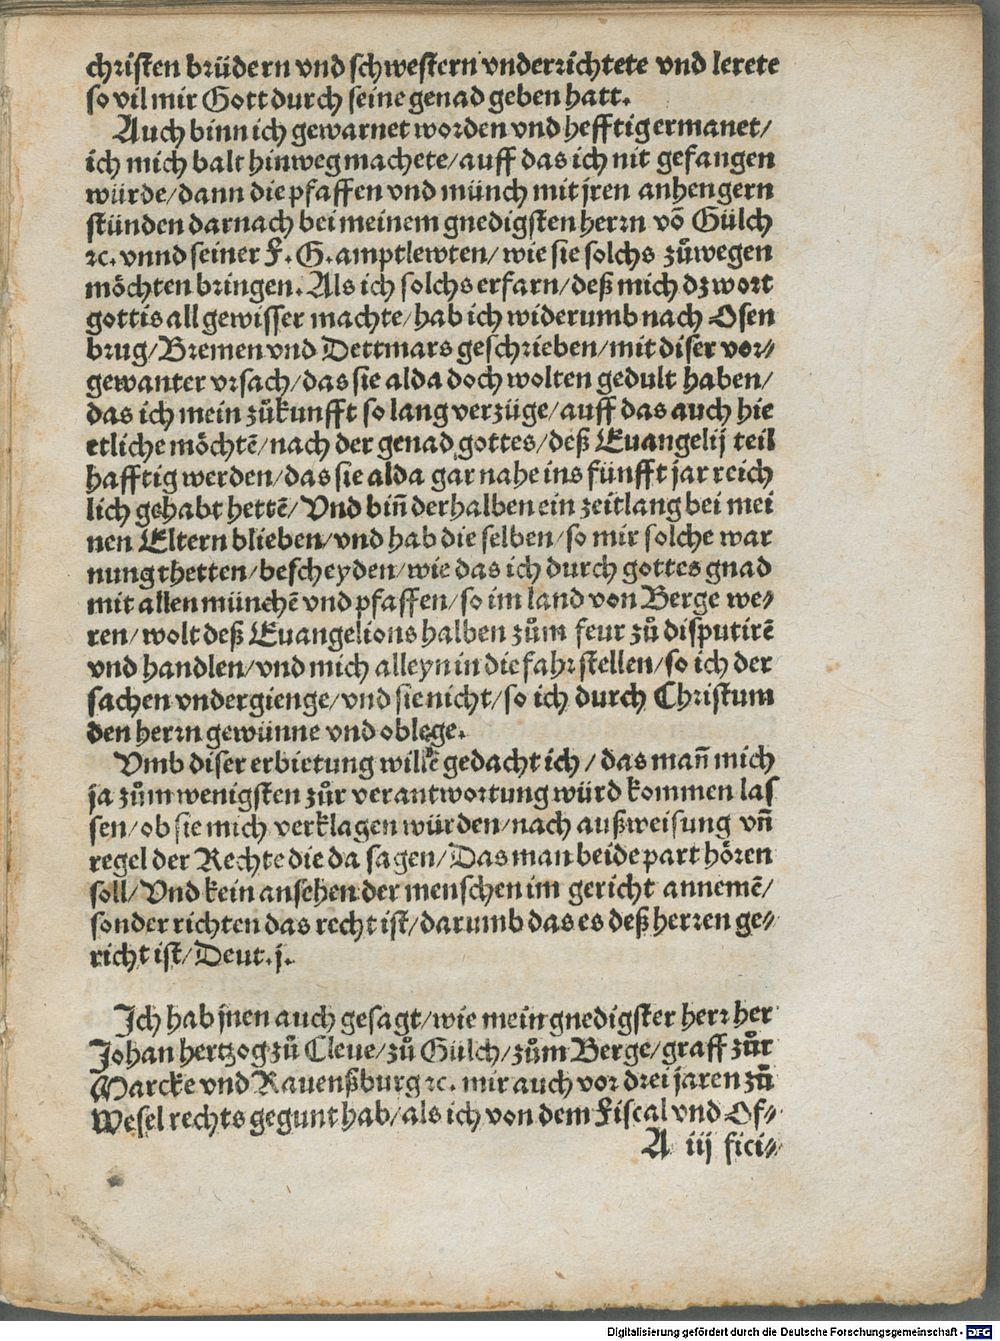 christen brüdern vnd schwestern vnderrichtete vnd lerete
so vil mir Gott durch seine genad geben hatt.
Auch binn ich gewarnet worden vnd hefftig ermanet/
ich mich balt hinweg machete/auff das ich nit gefangen
würde/dann die pfaffen vnd münch mit jren anhengern
stünden darnach bei meinem gnedigsten herrn võ Gülch
ꝛc. vnnd seiner F. G. amptlewten/ wie sie solchs zůwegen
möchten bringen. Als ich solchs erfarn/deß mich dz wort
gottis all gewisser machte/hab ich widerumb nach Osen
brug/Bremen vnd Dettmars geschrieben/mit diser vor⸗
gewanter vrsach/das sie alda doch wolten gedult haben/
das ich mein zůkunfft so lang verzüge/auff das auch hie
etliche möchtẽ/nach der genad gottes/deß Euangelij teil
hafftig werden/das sie alda gar nahe ins fünfft jar reich
lich gehabt hettẽ/ Vnd biñ derhalben ein zeitlang bei mei
nen Eltern blieben/vnd hab die selben/so mir solche war
nung thetten/bescheyden/wie das ich durch gottes gnad
mit allen münchẽ vnd pfaffen/so im land von Berge we⸗
ren/wolt deß Euangelions halben zům feur zů disputirẽ
vnd handlen/vnd mich alleyn in die fahr stellen/so ich der
sachen vndergienge/vnd sie nicht/so ich durch Christum
den herrn gewünne vnd oblege.
Vmb diser erbietung willẽ gedacht ich/ das mañ mich
ja zům wenigsten zůr verantwortung würd kommen las
sen/ob sie mich verklagen würden/nach außweisung vñ
regel der Rechte die da sagen/Das man beide part hören
soll/Vnd kein ansehen der menschen im gericht annemẽ/
sonder richten das recht ist/darumb das es deß herren ge⸗
richt ist/Deut. j.
Ich hab jnen auch gesagt/wie mein gnedigster herr her
Johan hertzog zů Cleue/zů Gülch/zům Berge/graff zůr
Marcke vnd Rauenßburg ꝛc. mir auch vor drei jaren zů
Wesel rechts gegunt hab/als ich von dem Fiscal vnd Of⸗
A iij fici⸗
Digitalisierung gefördert durch die Deutsche Forschungsgemeinschaft - DFG